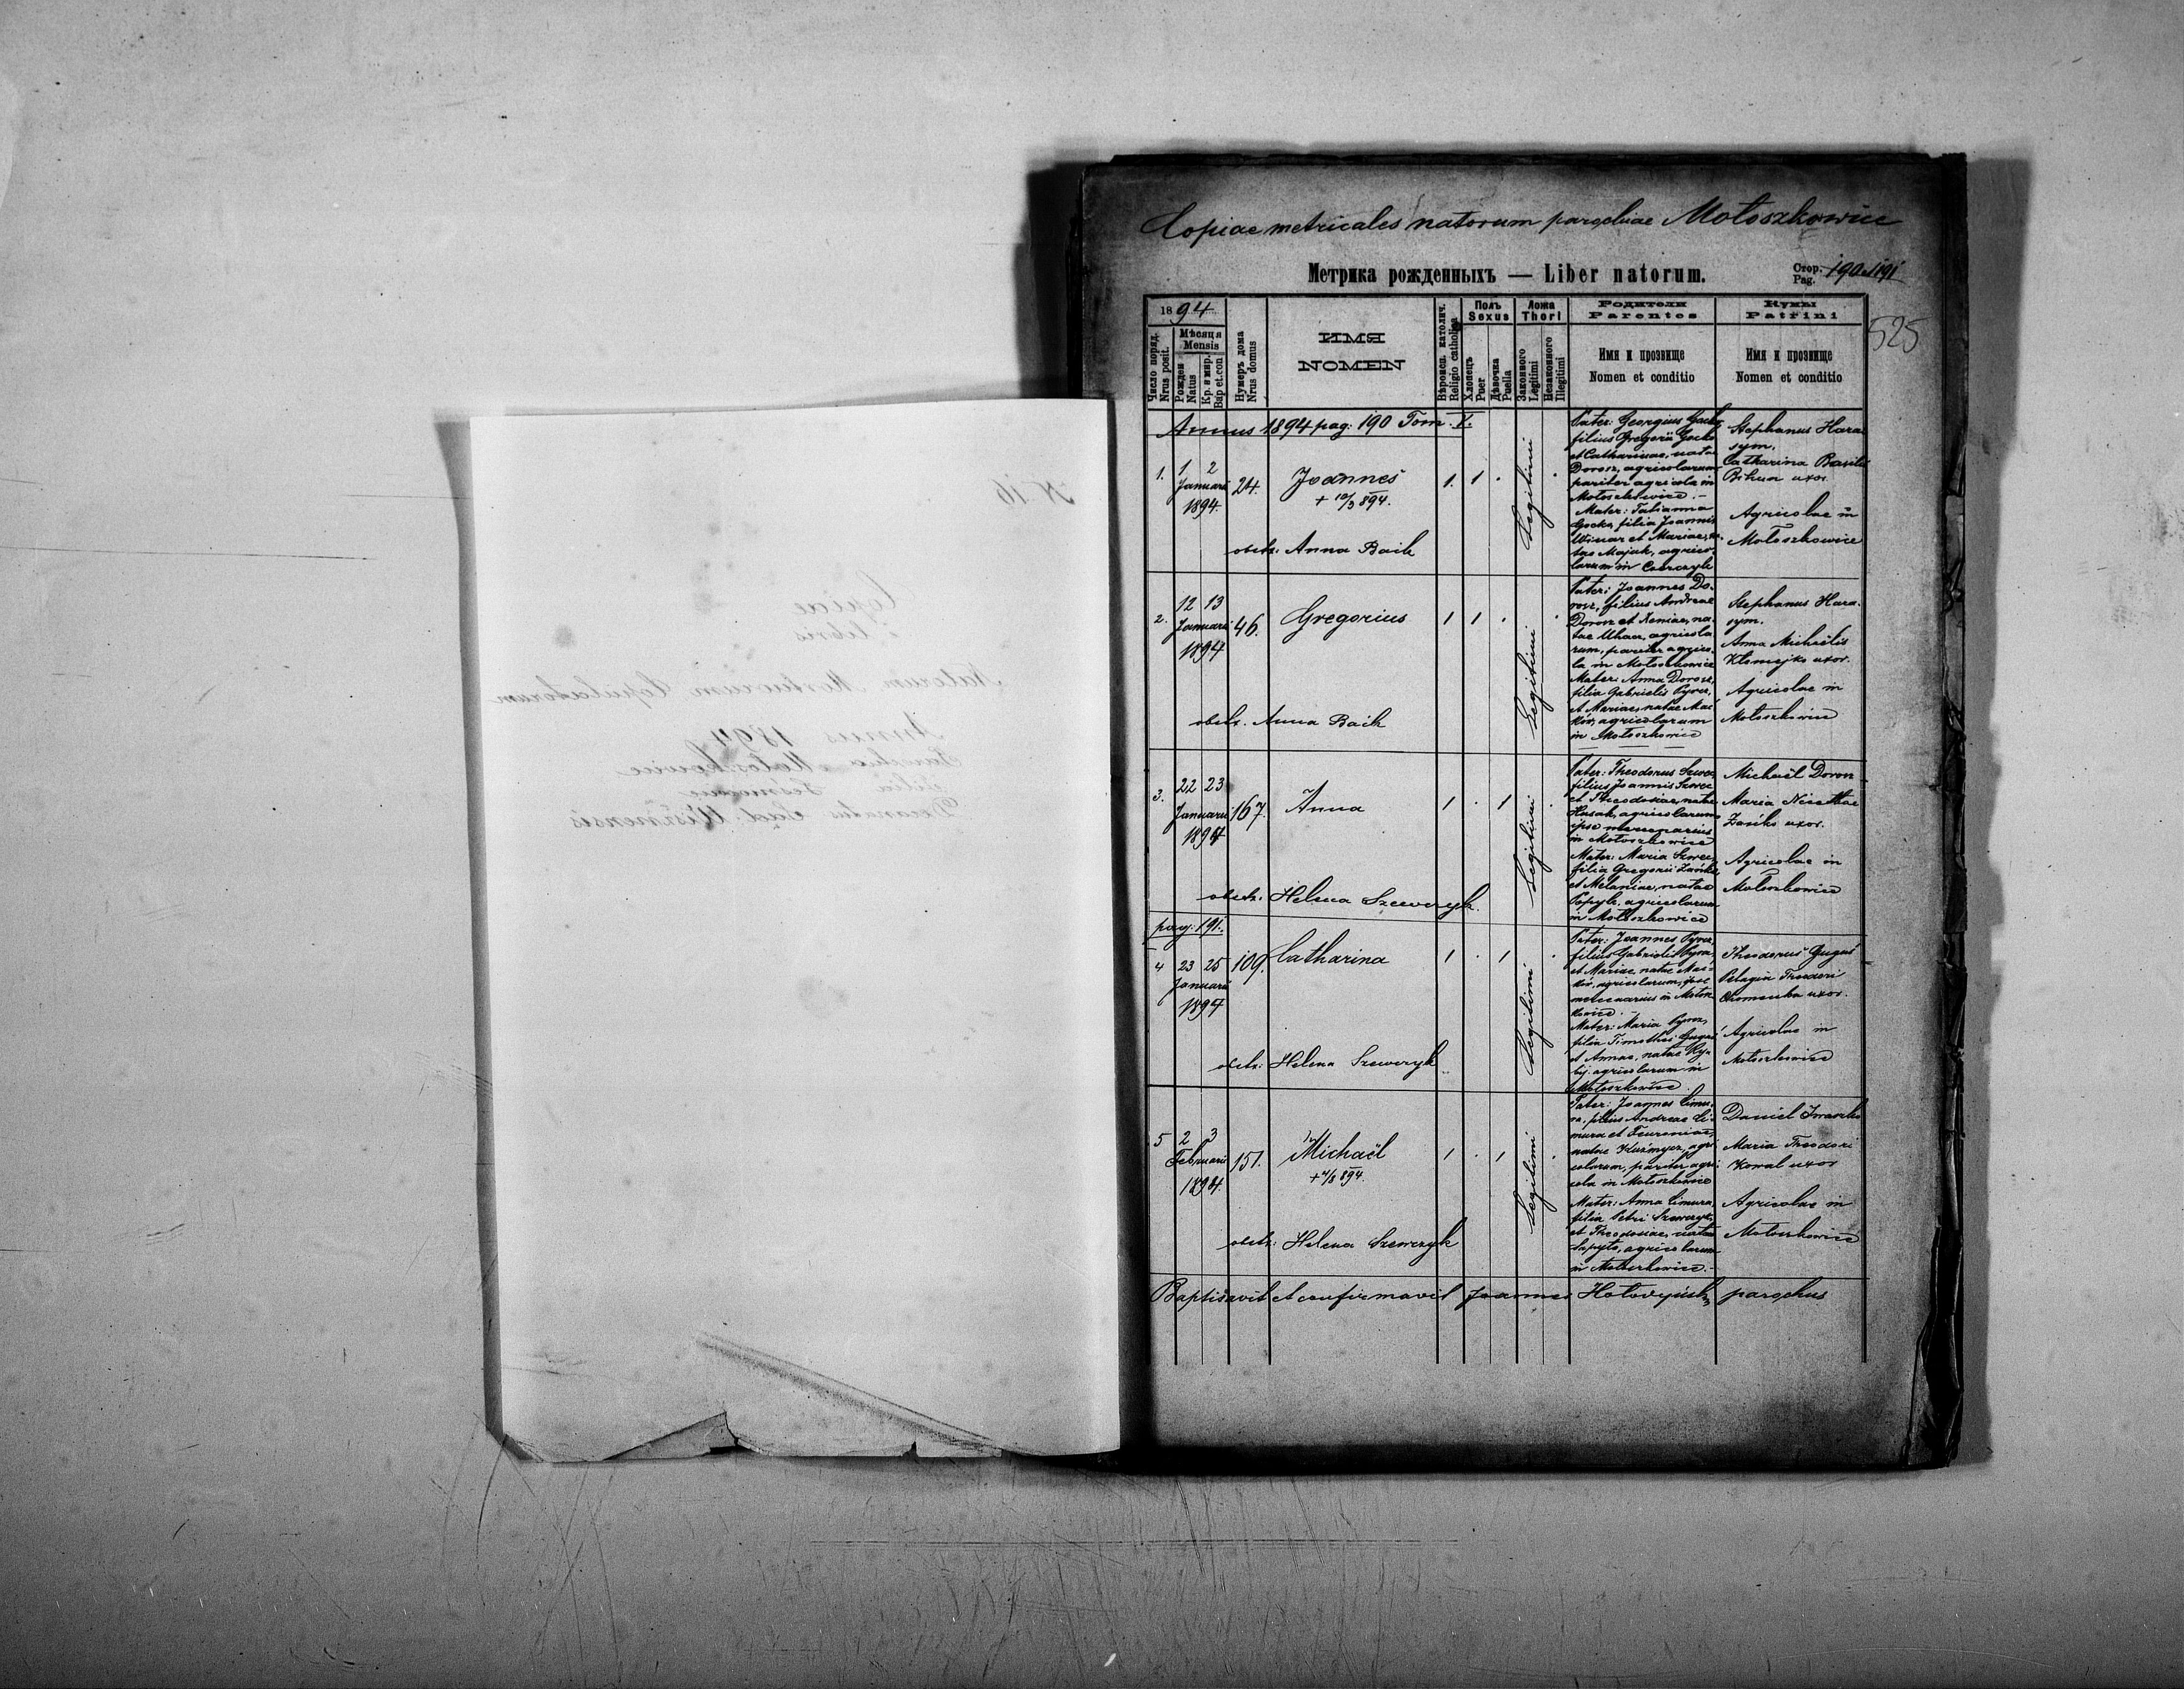 Copiae metricales natorum parochiae Mołoszkowice
Метрика рожденныхъ — Liber natorum.
Стор. Pag. 190 et 191
525
1894
Число поряд. Nrus posit.
Мѣсяця Mensis
Рожден Natus
Кр. и мир. Bap et.con
Нумеръ дома Nrus domus
ИМЯ
NOMEN
Вѣроисп. католич. Religio catholica
Полъ Sexus
Хлопецъ Puer
Дѣвочка Puella
Ложа Thori
Законного Legitimi
Незаконного Illegitimi
Родители
Parentes
Имя и прозвище
Nomen et conditio
Кумы
Patrini
Имя и прозвище
Nomen et conditio
Annus 1894 pag: 190 Tom. V.
1.
1 2
Januarii
1894.
24.
Joannes
+ 10/3 894.
obstr. Anna Baik
1. 1 .
Legitimi
Pater: Georgius Gocko,
filius Gregorii Gocko
et Catharinae, natae
Dorosz, agricolarum
pariter agricola in
Mołoszkowice.-
Mater: Tatianna
Gocko, filia Joannis
et Mariae, na-
tae Majak, agrico-
larum in
Stephanus Hara-
sym.
Catharina Basilii
Bihun uxor.
Agricolae in
Mołoszkowice
2.
12 13
Januarii
1894
46.
Gregorius
obstr. Anna Baik
1 1 .
Legitimi
Pater: Joannes Do-
rosz, filius Andreae
Dorosz et Xeniae, na-
tae agricola-
rum, pariter agrico-
la in Mołoszkowice
Mater: Anna Dorosz,
filia Gabrielis Pyrcz,
et Mariae, natae Mać-
ków, agricolarum
in Mołoszkowice
Stephanus Hara-
sym.
Anna Michaëlis
uxor.
Agricolae in
Mołoszkowice
3.
22 23
Januarii
1894
167.
Anna
obstr. Helena Szewczyk.
1 . 1
Legitimi
Pater: Theodorus Szwec,
filius Joannis Szwec
et Theodosiae, natae
Husak, agricolarum
ipse mercenarius
in Mołoszkowice
Mater: Maria Szwec,
filia Gregorii
et Melaniae, natae
agricolarum
in Mołoszkowice
Michaël Dorosz
Maria Nicethae
uxor.
Agricolae in
Mołoszkowice
pag: 191.
4
23 25
Januarii
1894
109.
Catharina
obstr: Helena Szewczyk
1 . 1
Legitimi
Pater: Joannes Pyrcz,
filius Gabrielis Pyrcz,
et Mariae, natae Mać-
ków, agricolarum, ipse
mercenarius in Mołosz-
kowice.-
Mater: Maria Pyrcz,
filia Timothei
et Annae, natae
agricolarum in
Mołoszkowice.
Theodorus
Pelagia Theodori
uxor.
Agricolae in
Mołoszkowice
5
2 3
Februarii
1894.
151.
Michaël
+ 4/8 894.
obstr: Helena Szewczyk
1 . 1 .
Legitimi
Pater: Joannes Cimu-
ra, filius Andreae Ci-
mura et
natae Kuźmycz, agri-
colarum, pariter agri-
cola in Mołoszkowice
Mater: Anna Cimura,
filia Petri Szewczyk,
et Theodosiae, natae
agricolarum
in Mołoszkowice.-
Daniel Iwaszko
Maria Theodori
Kowal uxor
Agricolae in
Mołoszkowice
Baptisavit et confirmavit Joannes parochus
N 16
Copiae
e libris
Natorum Mortuorum Copulatorum
Annus 1894
Parochia Mołoszkowice
Filia
Decanatus